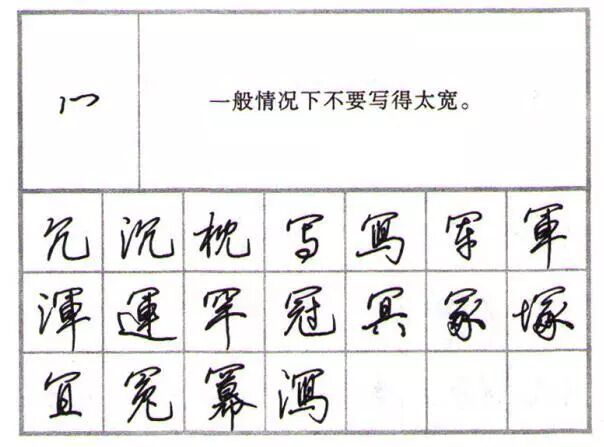 冖 一般情况下不要写得太宽。
冗 沉 枕 写 冩 军 軍
渾 運 罕 冠 冥 冢 塚
冝 冤 冪 瀉